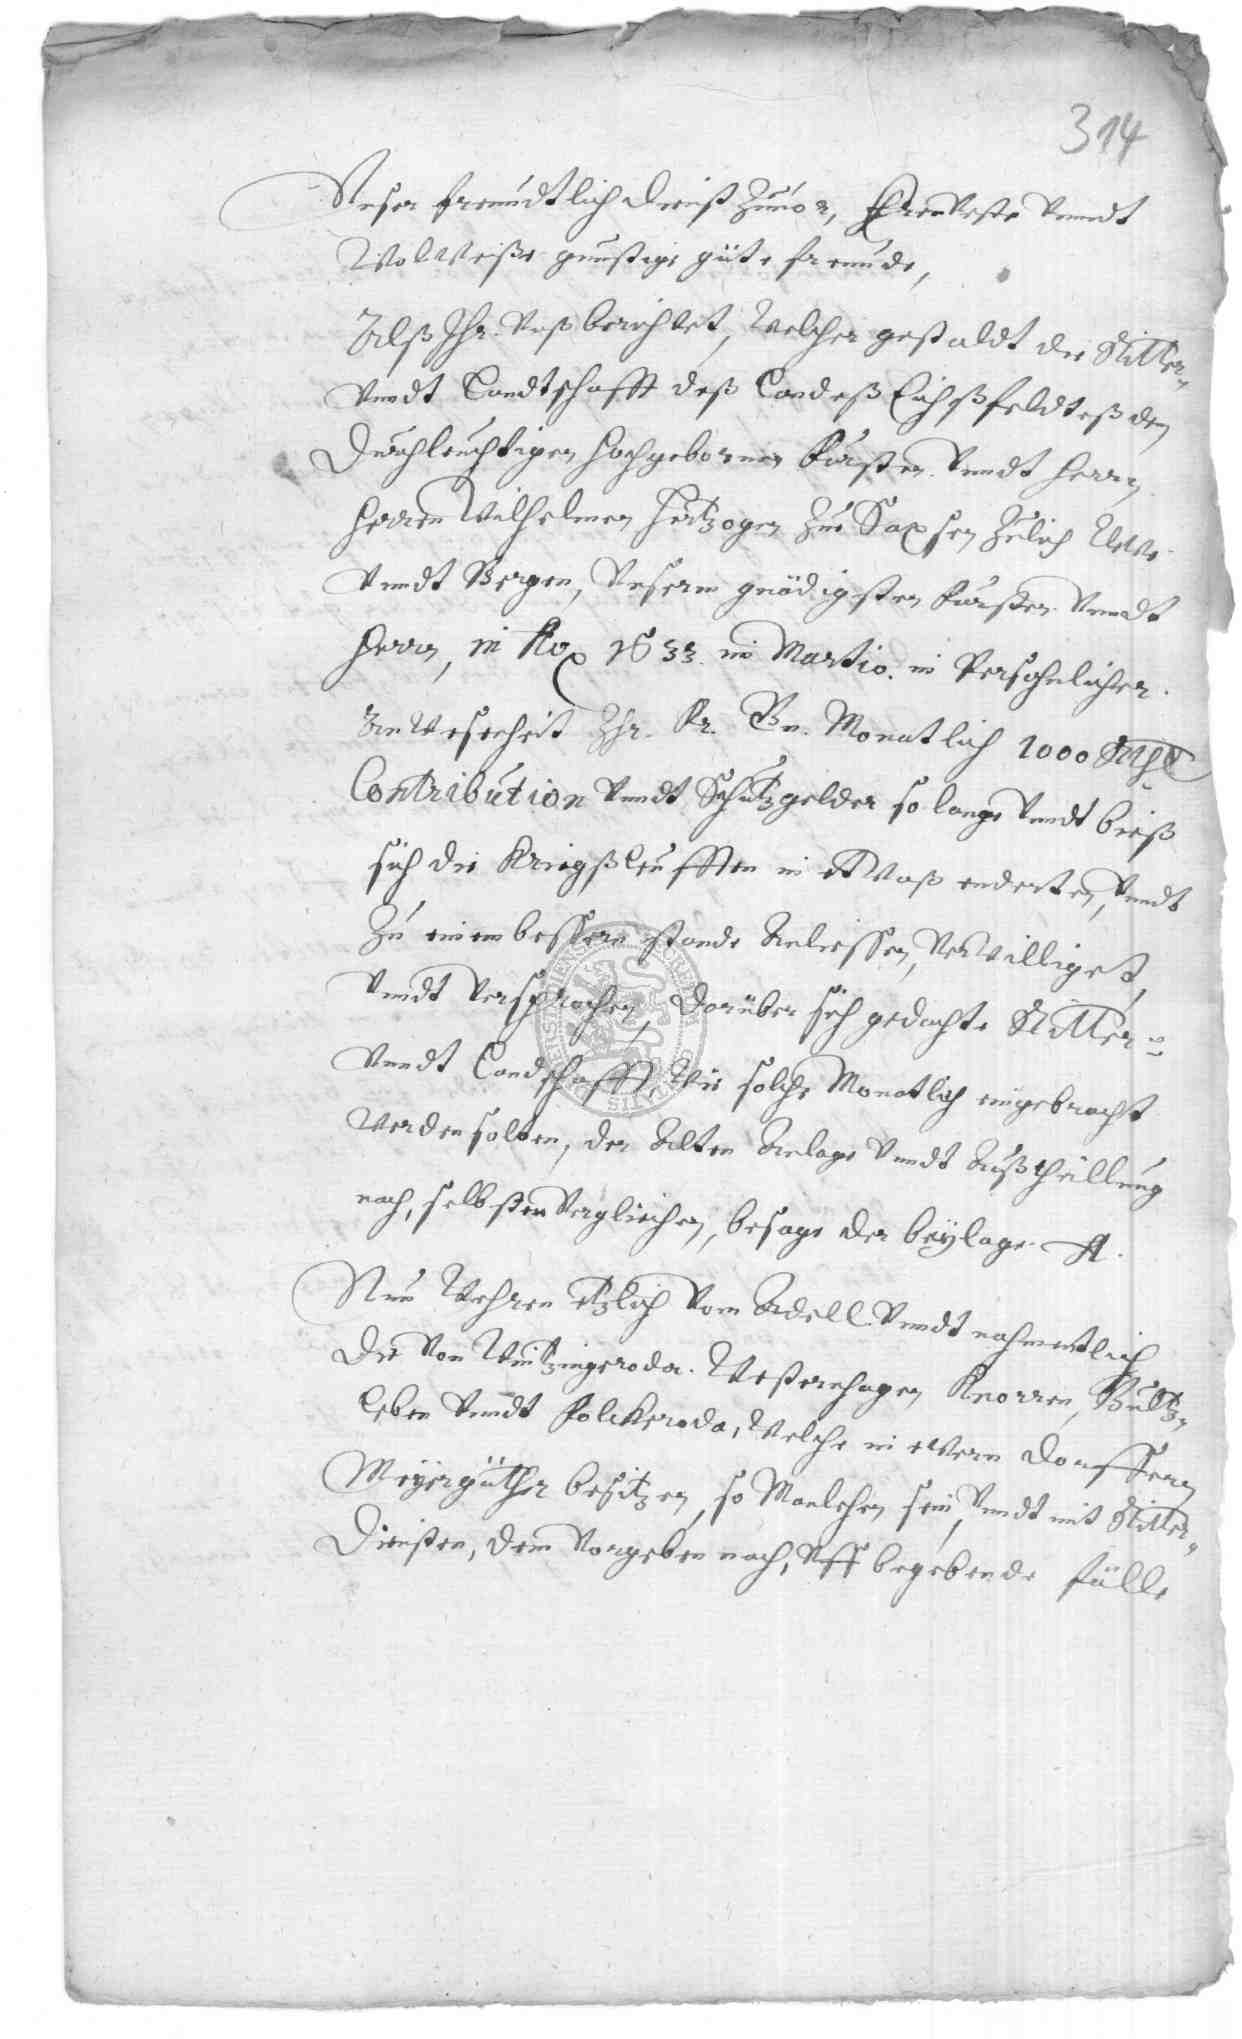 314
Unser freundtlich dienst Zuuor, Ehrnveste vnndt
Wolweise günstige gute freunde,
Alß Ihr vnß berichtet, welcher gestaldt die Ritter-
vnndt Landtschafft deß Landeß Eichßfeldteß dem
Durchleuchtigen Hochgebornen Fürsten vnndt Herrn
Herren Wilhelmen Hertzogen Zue Sachsen Jülich Cleve
vnndt Bergen, vnserm gnädigsten Fürsten vnndt
Herrn, in Ao 1633 im Martio in Persohnlicher
Anwesenheit Ihr. Fr. Gn. Monatlich 1000 Rthl
Contribution vnndt Schutzgelder so lange vnndt bieß
sich die Kriegßleufften in etwaß enderten, vnndt
Zu einem bessern stande anliessen, verwilliget,
vnndt versprochen, darüber sich gedachte Ritter-
vnndt Landschafft, wie solche Monatlich eingebracht
werden solten, der Alten Anlage vnndt Außtheillung
nach, selbsten verglichen, besage der beylage A.
Nun wehren etzlich vom Adell vnndt nahmentlich
die von Wintzingeroda Westernhagen Knorren, Bültz-
leben vnndt Volckeroda, welche in ewern dorffern
Meyergüther besitzen, so Manlehen sein, vnndt mit Ritter-
diensten, dem vorgeben nach, vff begebende fälle